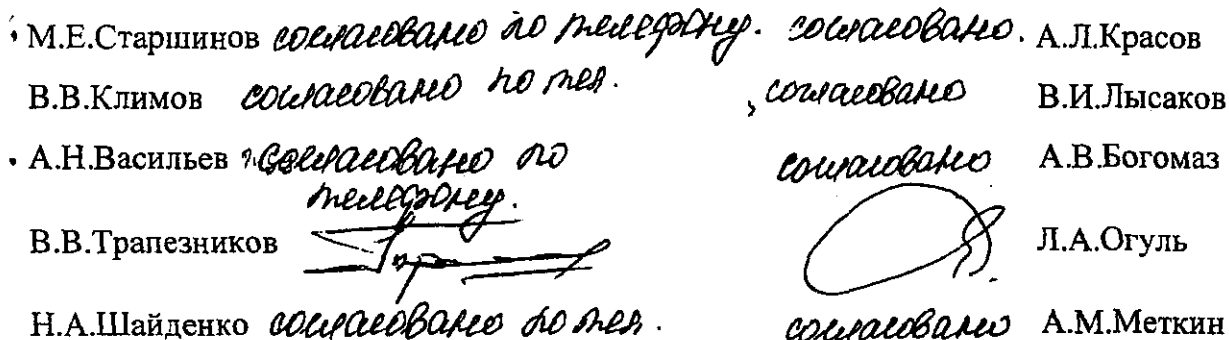 М.Е.Старшинов согласовано по телефону. согласовано. А.Л.Красов
В.В.Климов согласовано по тел. согласовано В.И.Лысаков
А.Н.Васильев согласовано по телефону. согласовано А.В.Богомаз
В.В.Трапезников Л.А.Огуль
Н.А.Шайденко согласовано по тел. согласовано А.М.Меткин